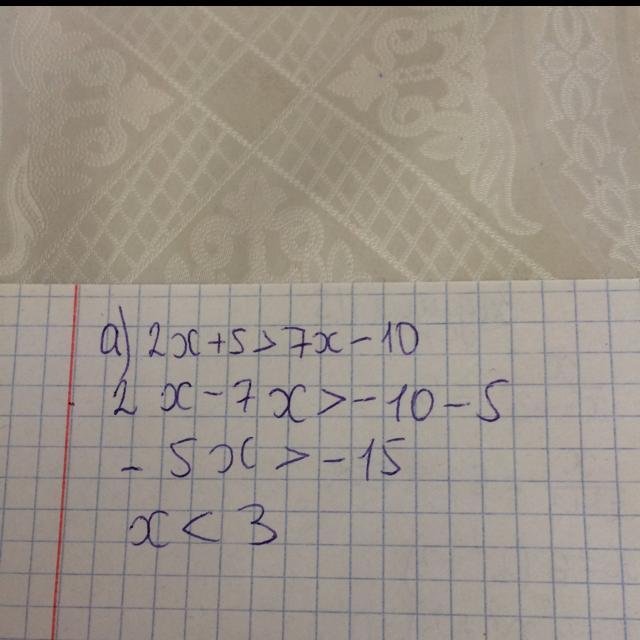 а) 2x+5>7x-10
2x-7x>-10-5
-5x>-15
x<3